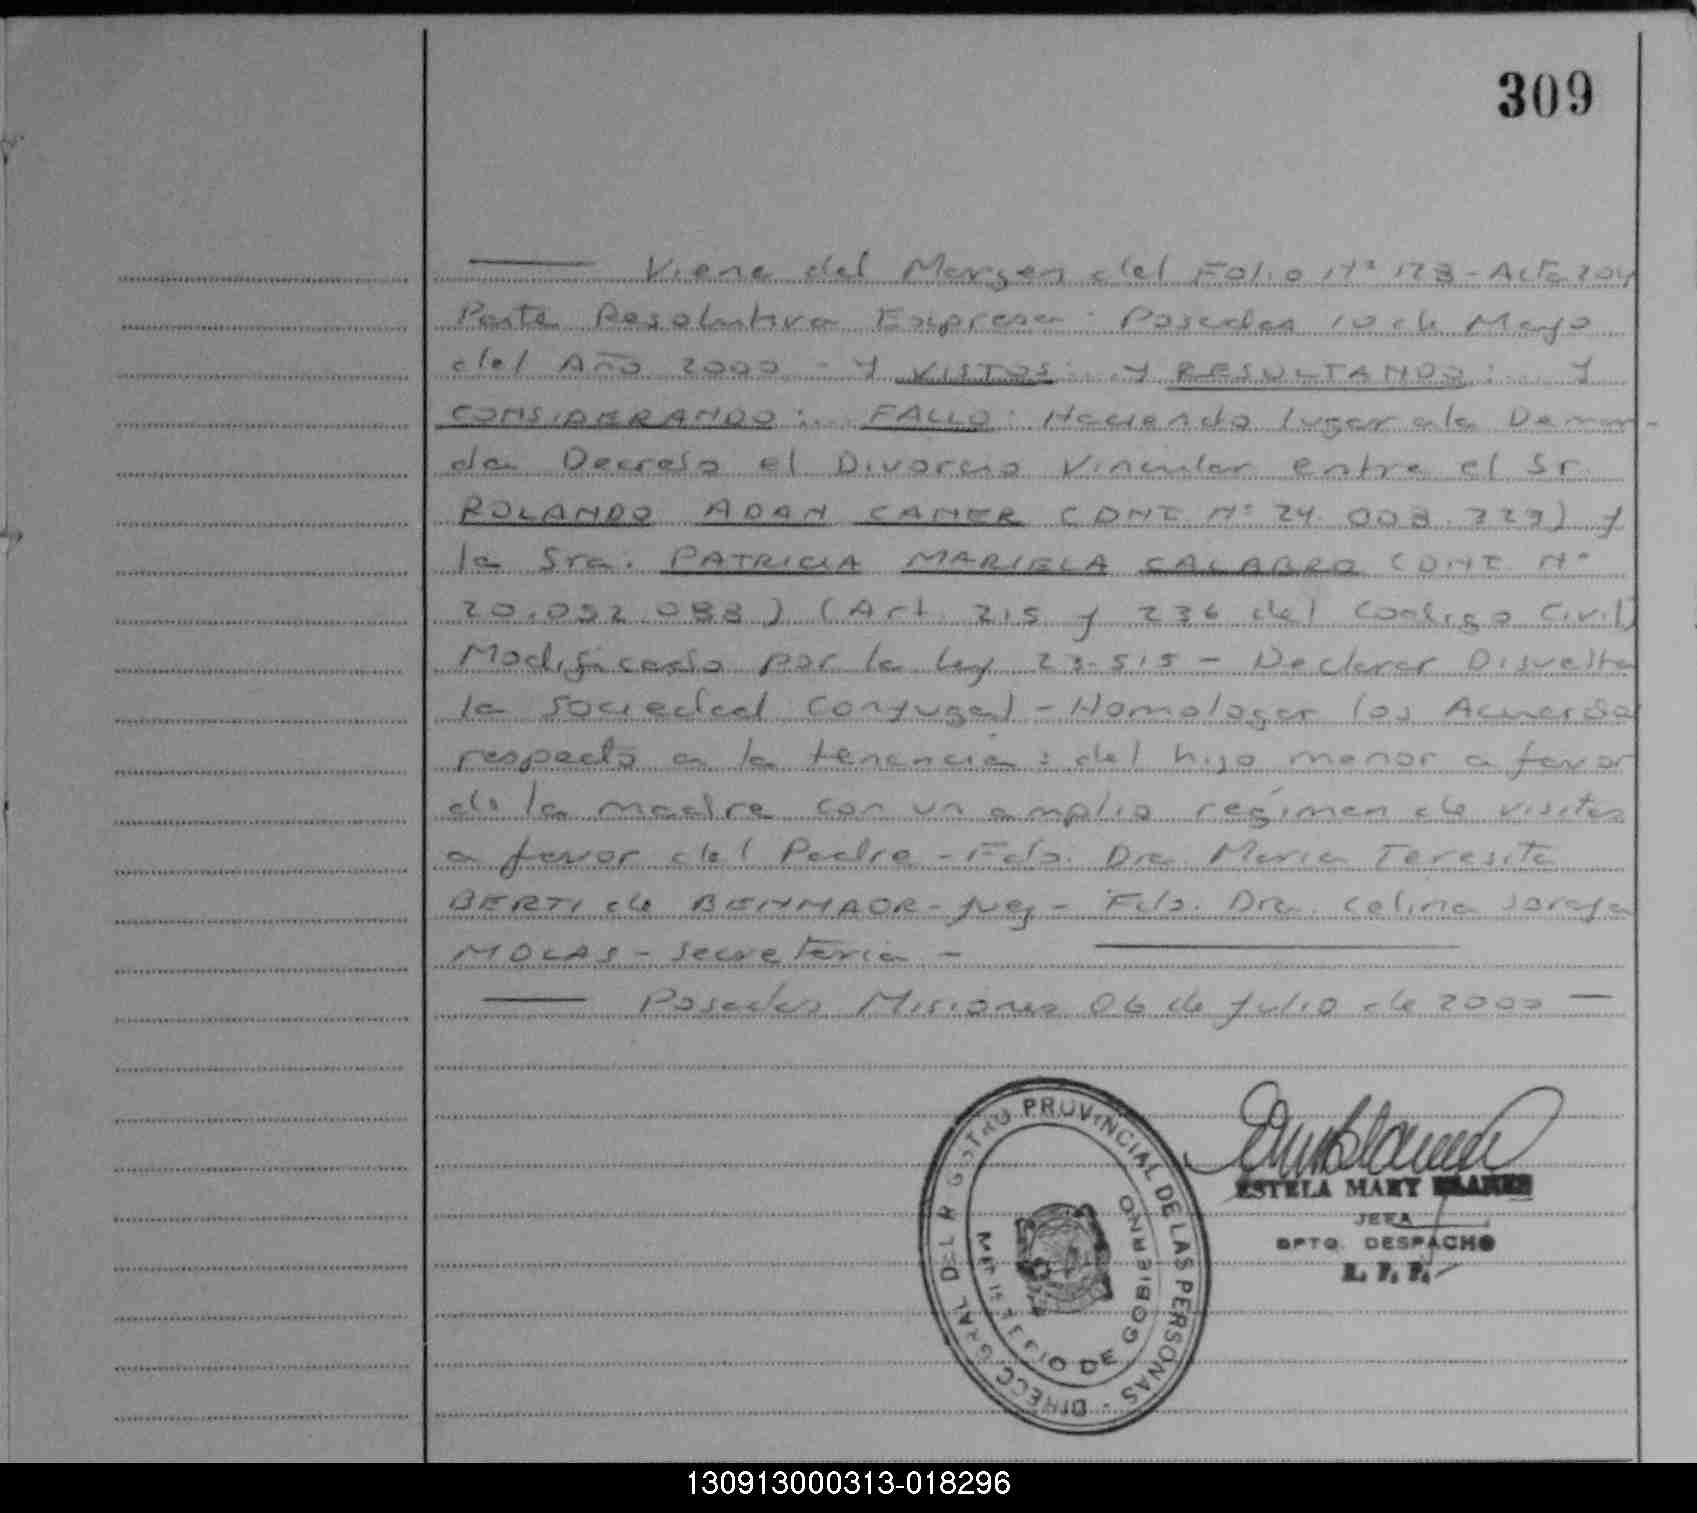 309
Viene del Margen del Folio Nº 178 - Acta 204
Parte Resolutiva Expresa: Posadas 10 de Mayo
del Año 2000 - Y VISTOS:... Y RESULTANDO:... Y
CONSIDERANDO:... FALLO: Haciendo lugar a la Deman-
da Decreto el Divorcio Vincular entre el Sr.
ROLANDO ADAN CANER (DNI Nº 24.008.229) y
la Sra. PATRICIA MARIELA CALABRO (DNI Nº
20.092.088) (Art. 215 y 236 del Codigo Civil)
Modificado por la ley 23.515 - Declarar Disuelta
la Sociedad Conyugal - Homologar los Acuerdos
respecto a la tenencia: del hijo menor a favor
de la madre con un amplio regimen de visitas
a favor del Padre - Fdo. Dra. Maria Teresita
BERTI de BENMAOR - Juez - Fdo. Dra. Celina Soraya
MOLAS - Secretaria -
Posadas Misiones 06 de Julio de 2000 -
DIRECC GRAL DEL REGISTRO PROVINCIAL DE LAS PERSONAS
MINISTERIO DE GOBIERNO
ESTELA MARY
JEFA
DPTO. DESPACHO
R. P. P.
130913000313-018296